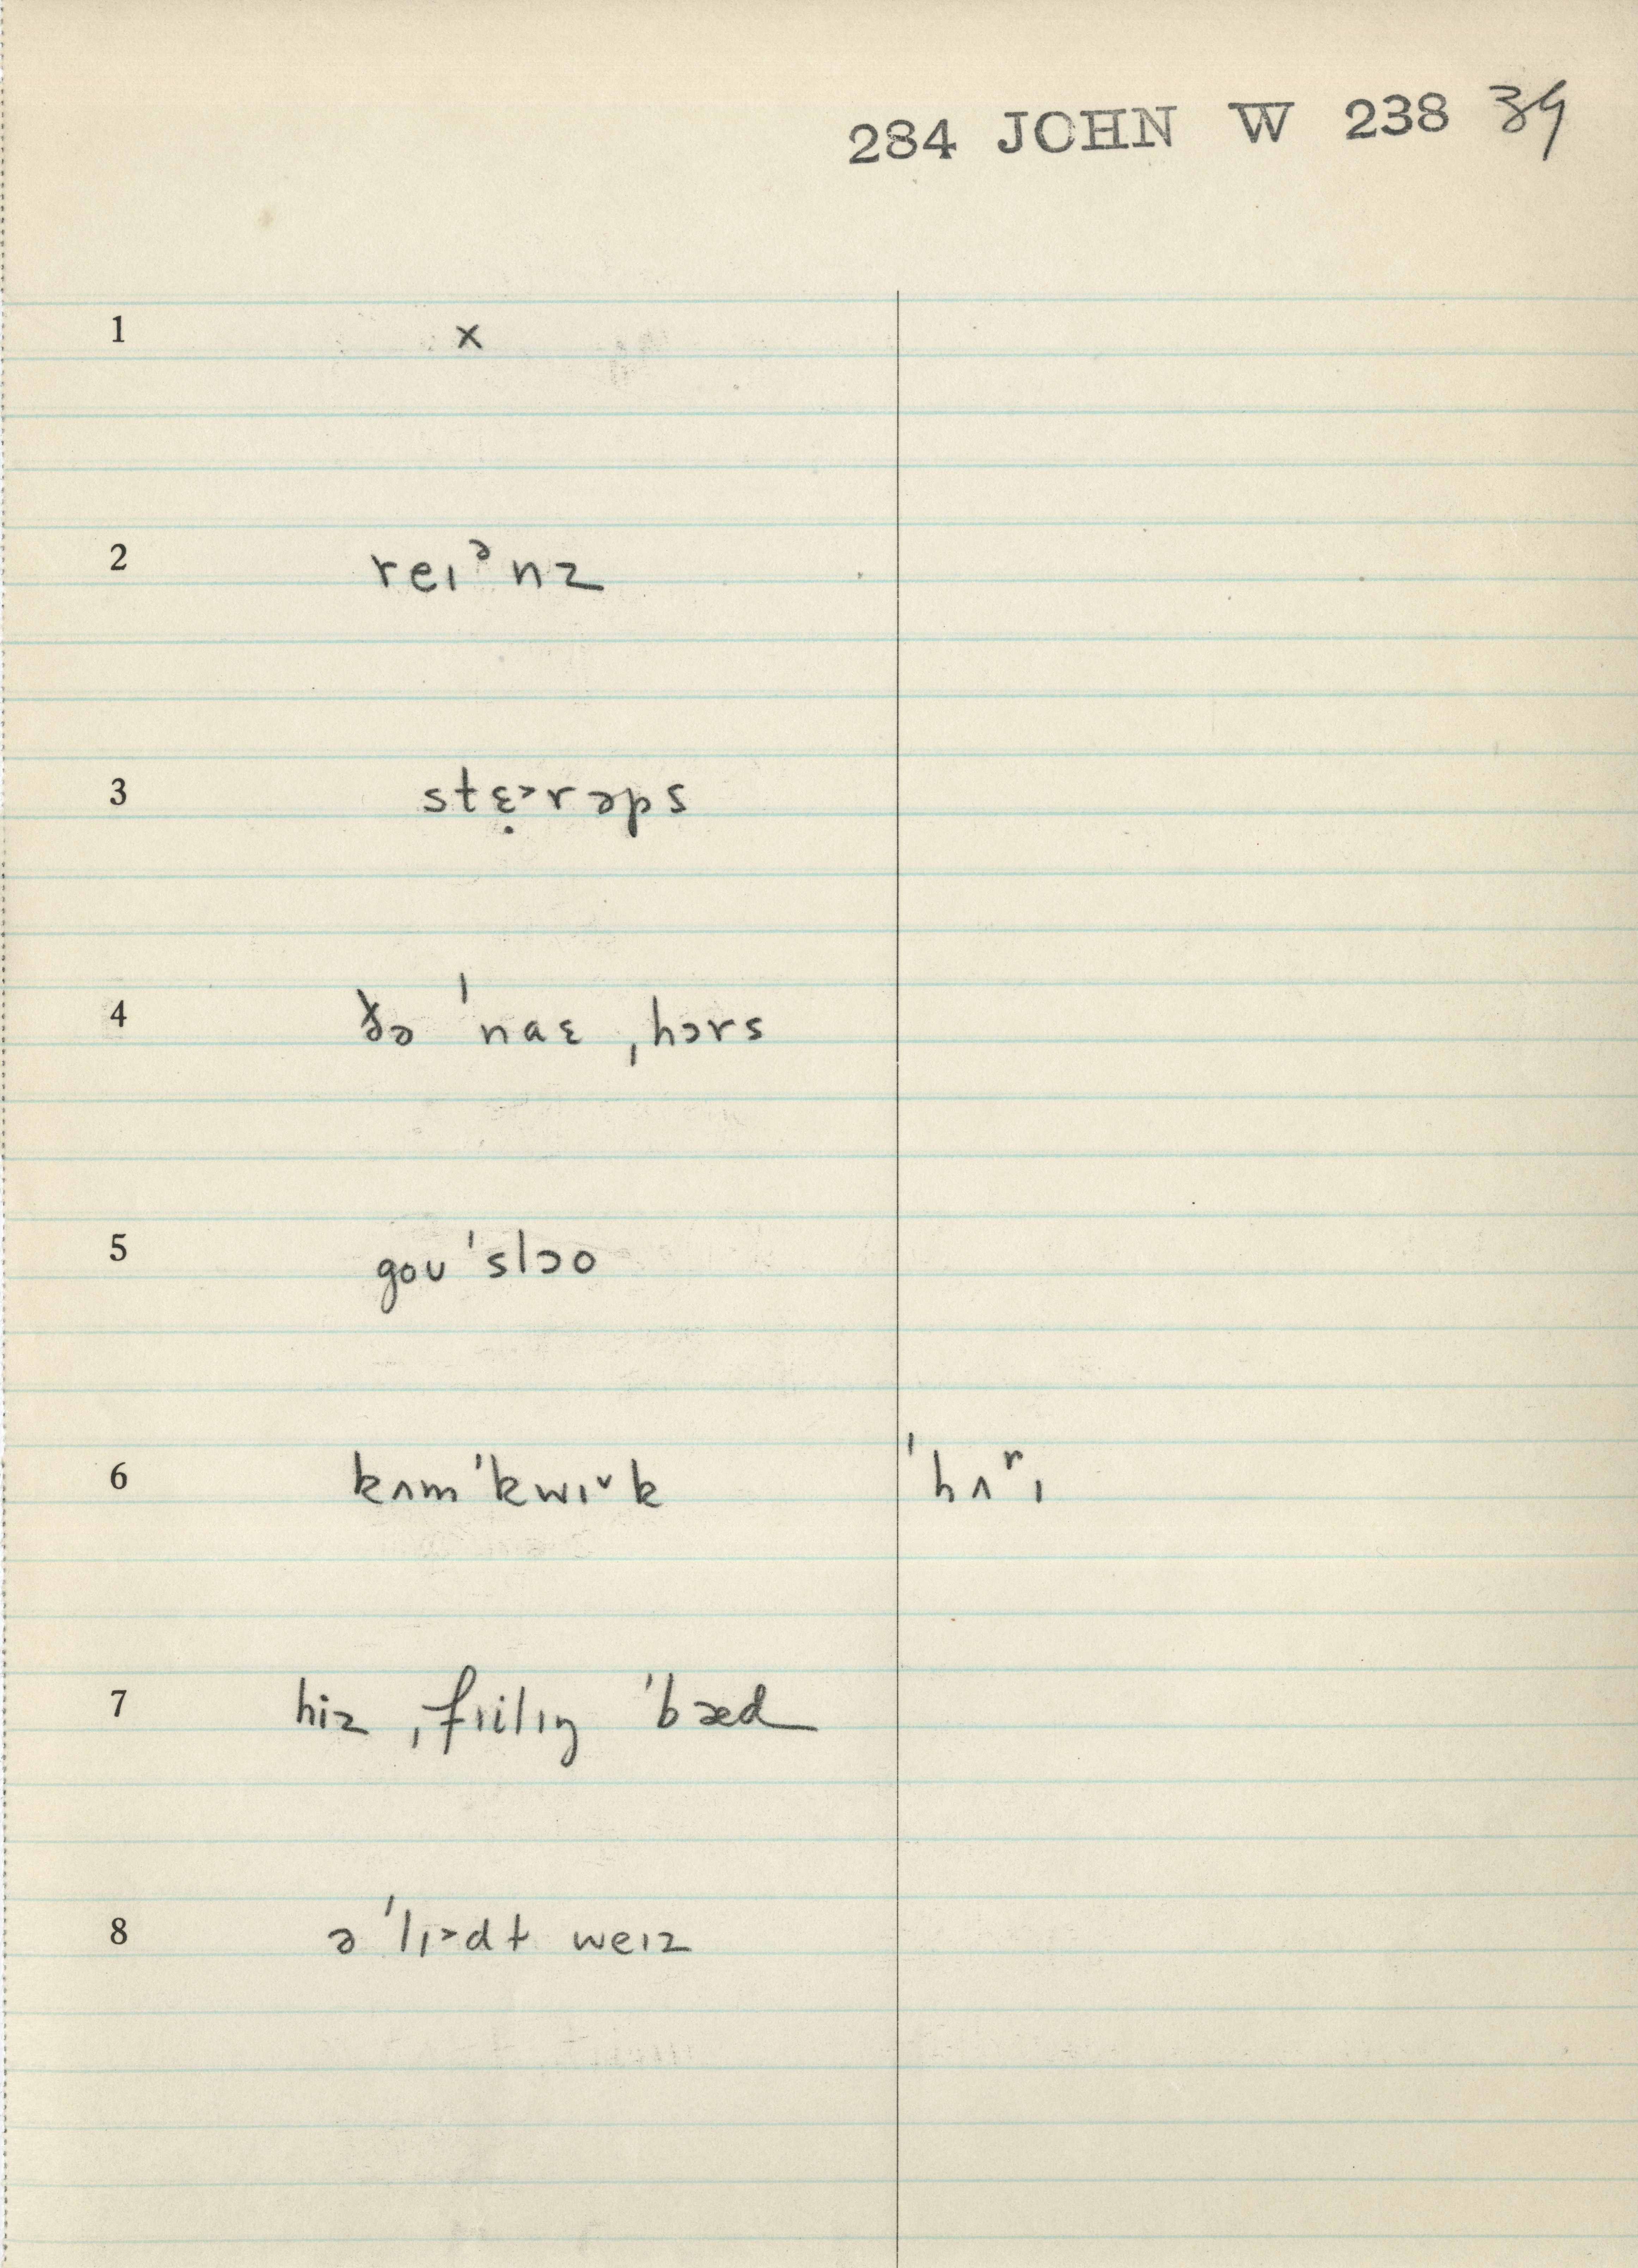 284 JOHN W 238 39
1 x
2 reɪᵊnz
3 stɛ̣˃rəps
4 ðə ˈnaɛ ˌhɔrs
5 goʊ ˈslɔo
6 kʌm ˈkwɪ˅k ˈhʌʳɪ
7 hiz ˌfɪilɪŋ ˈbæd
8 ə ˈlɪ˃dt weɪz